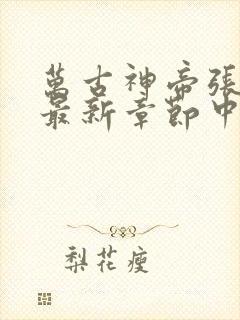 萬古神帝張
最新章節中
梨花瘦